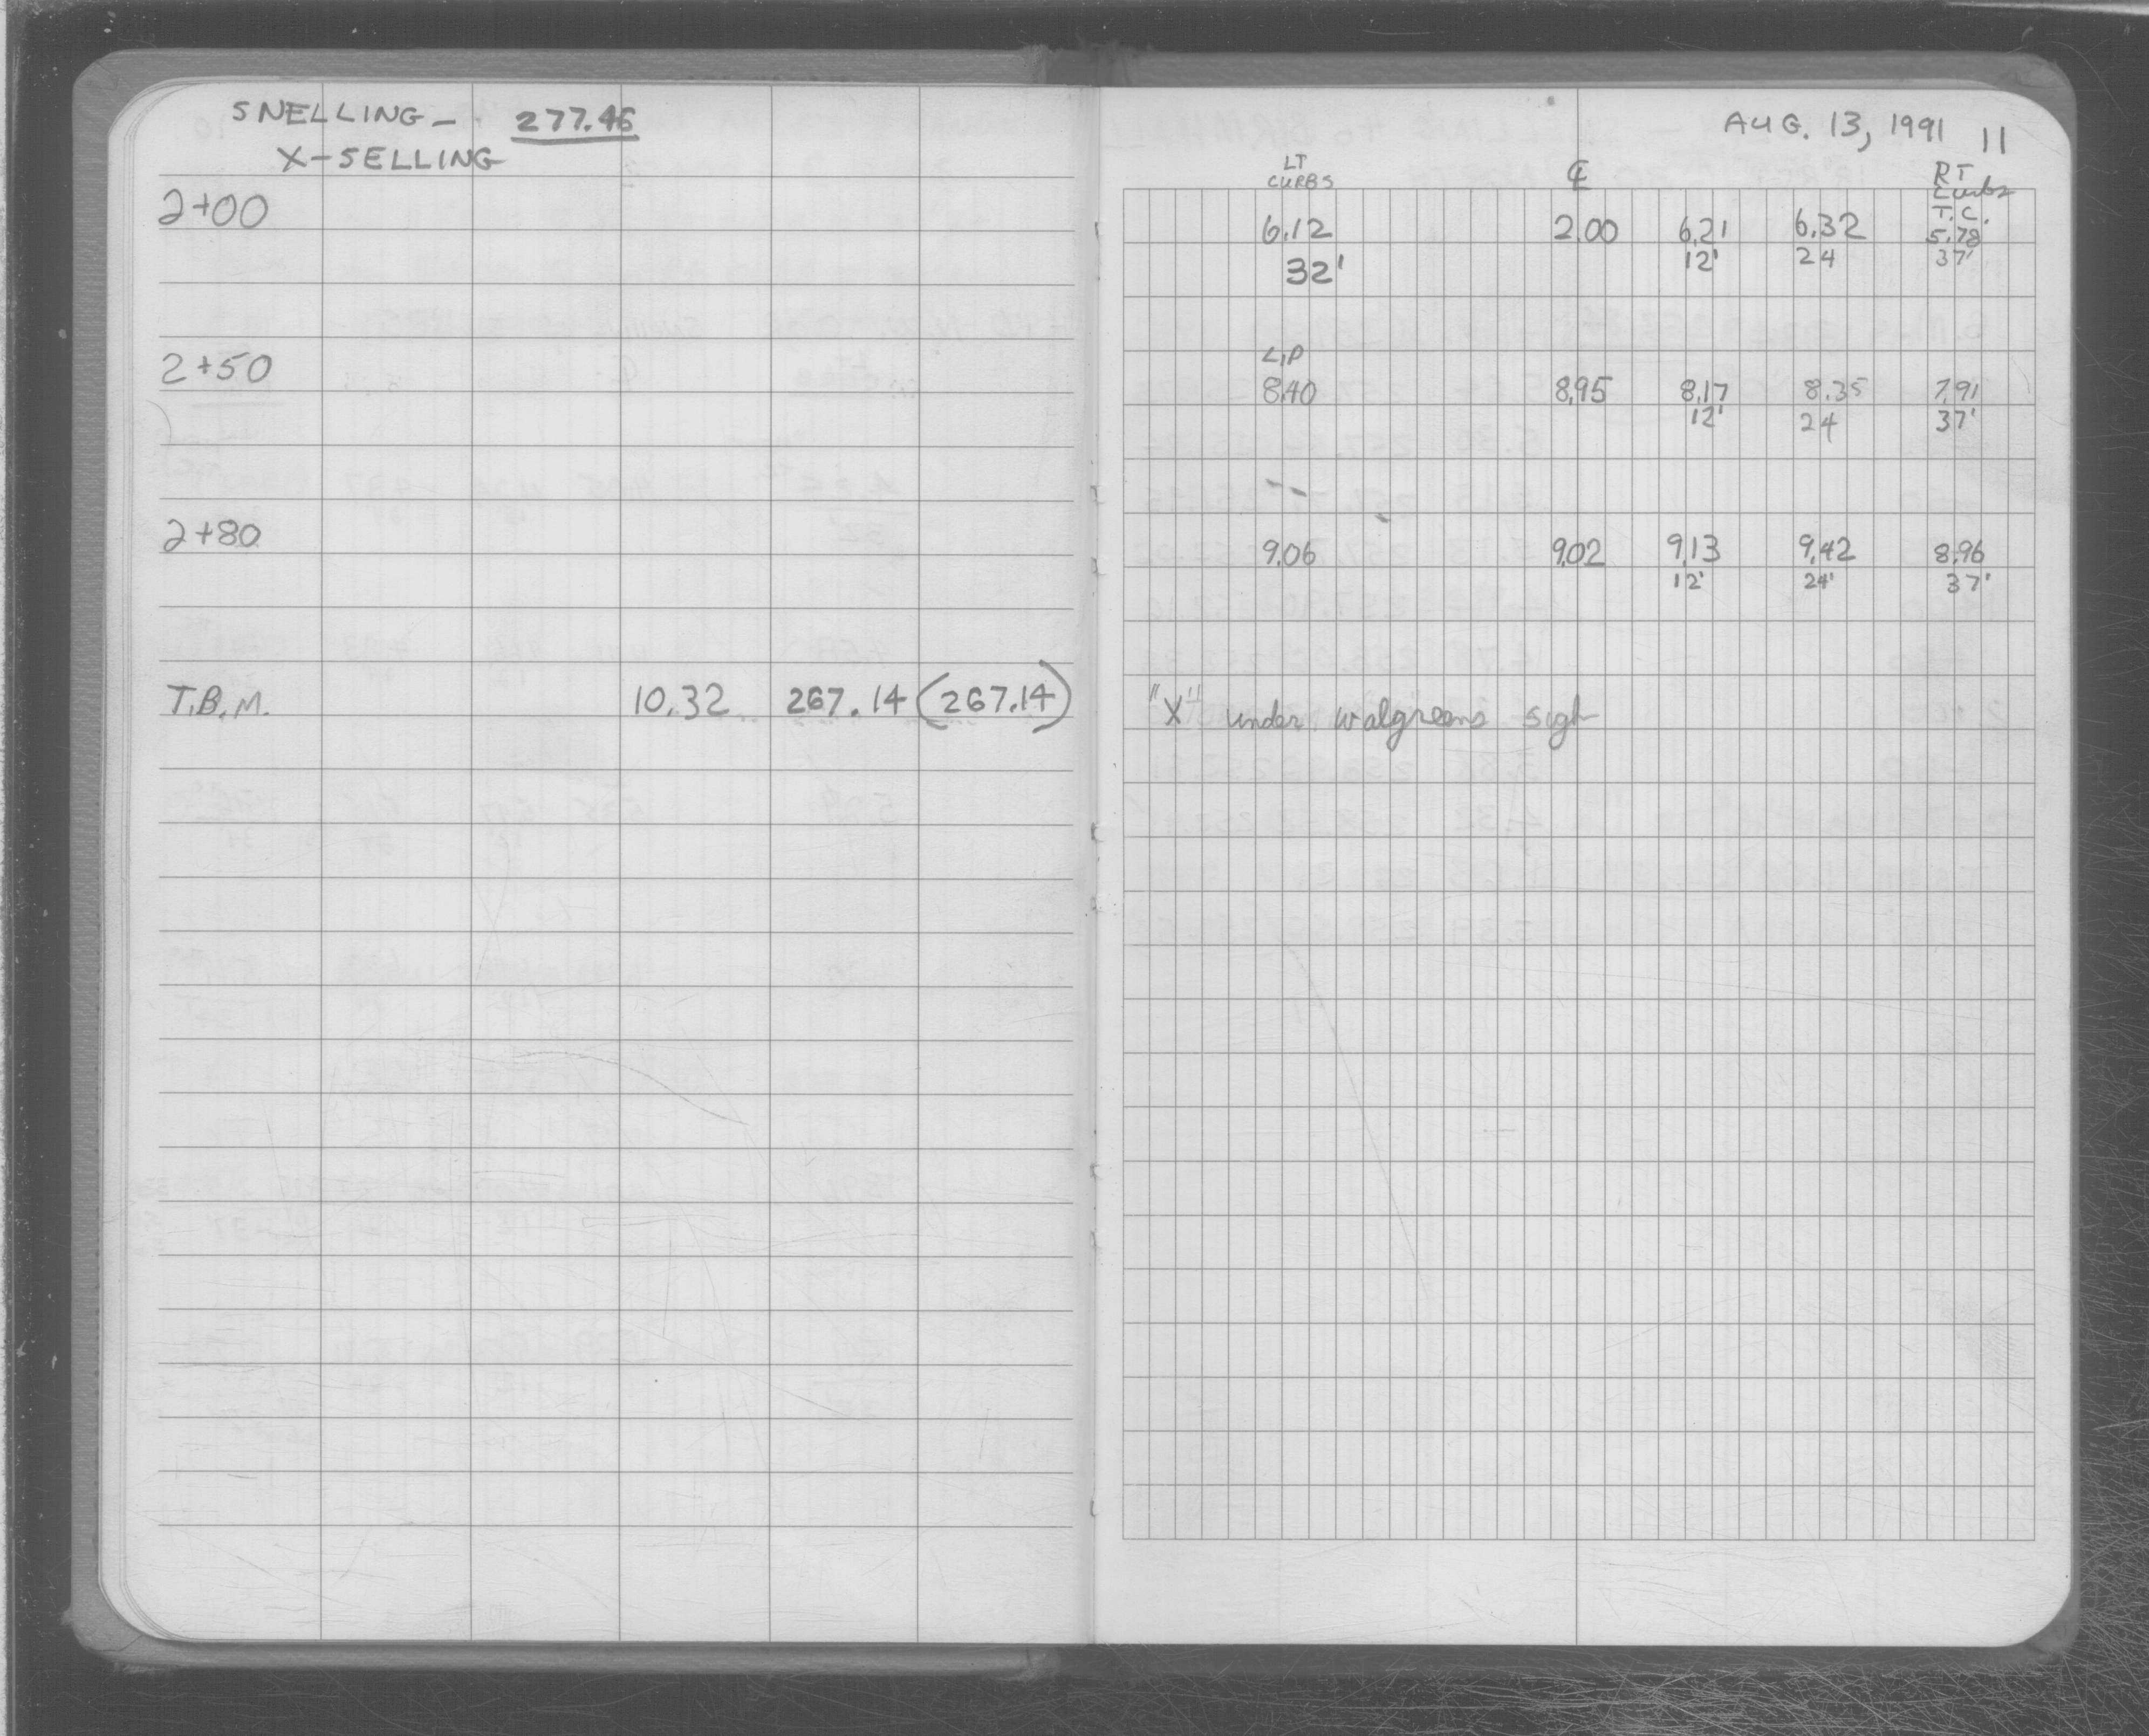 SNELLING- 277.46
X-SELLING
AUG. 13, 1991 11
LT ℄ RT
CURBS Curbs
T.C.
2+00 6.12 2.00 6.21 6.32 5.78
32' 12' 24 37'
LIP
2+50 8.40 8.95 8.17 8.35 7.91
12' 24 37'
2+80 9.06 9.02 9.13 9.42 8.96
12' 24' 37'
T.B.M. 10.32 267.14 (267.14) "X" under walgreens sign